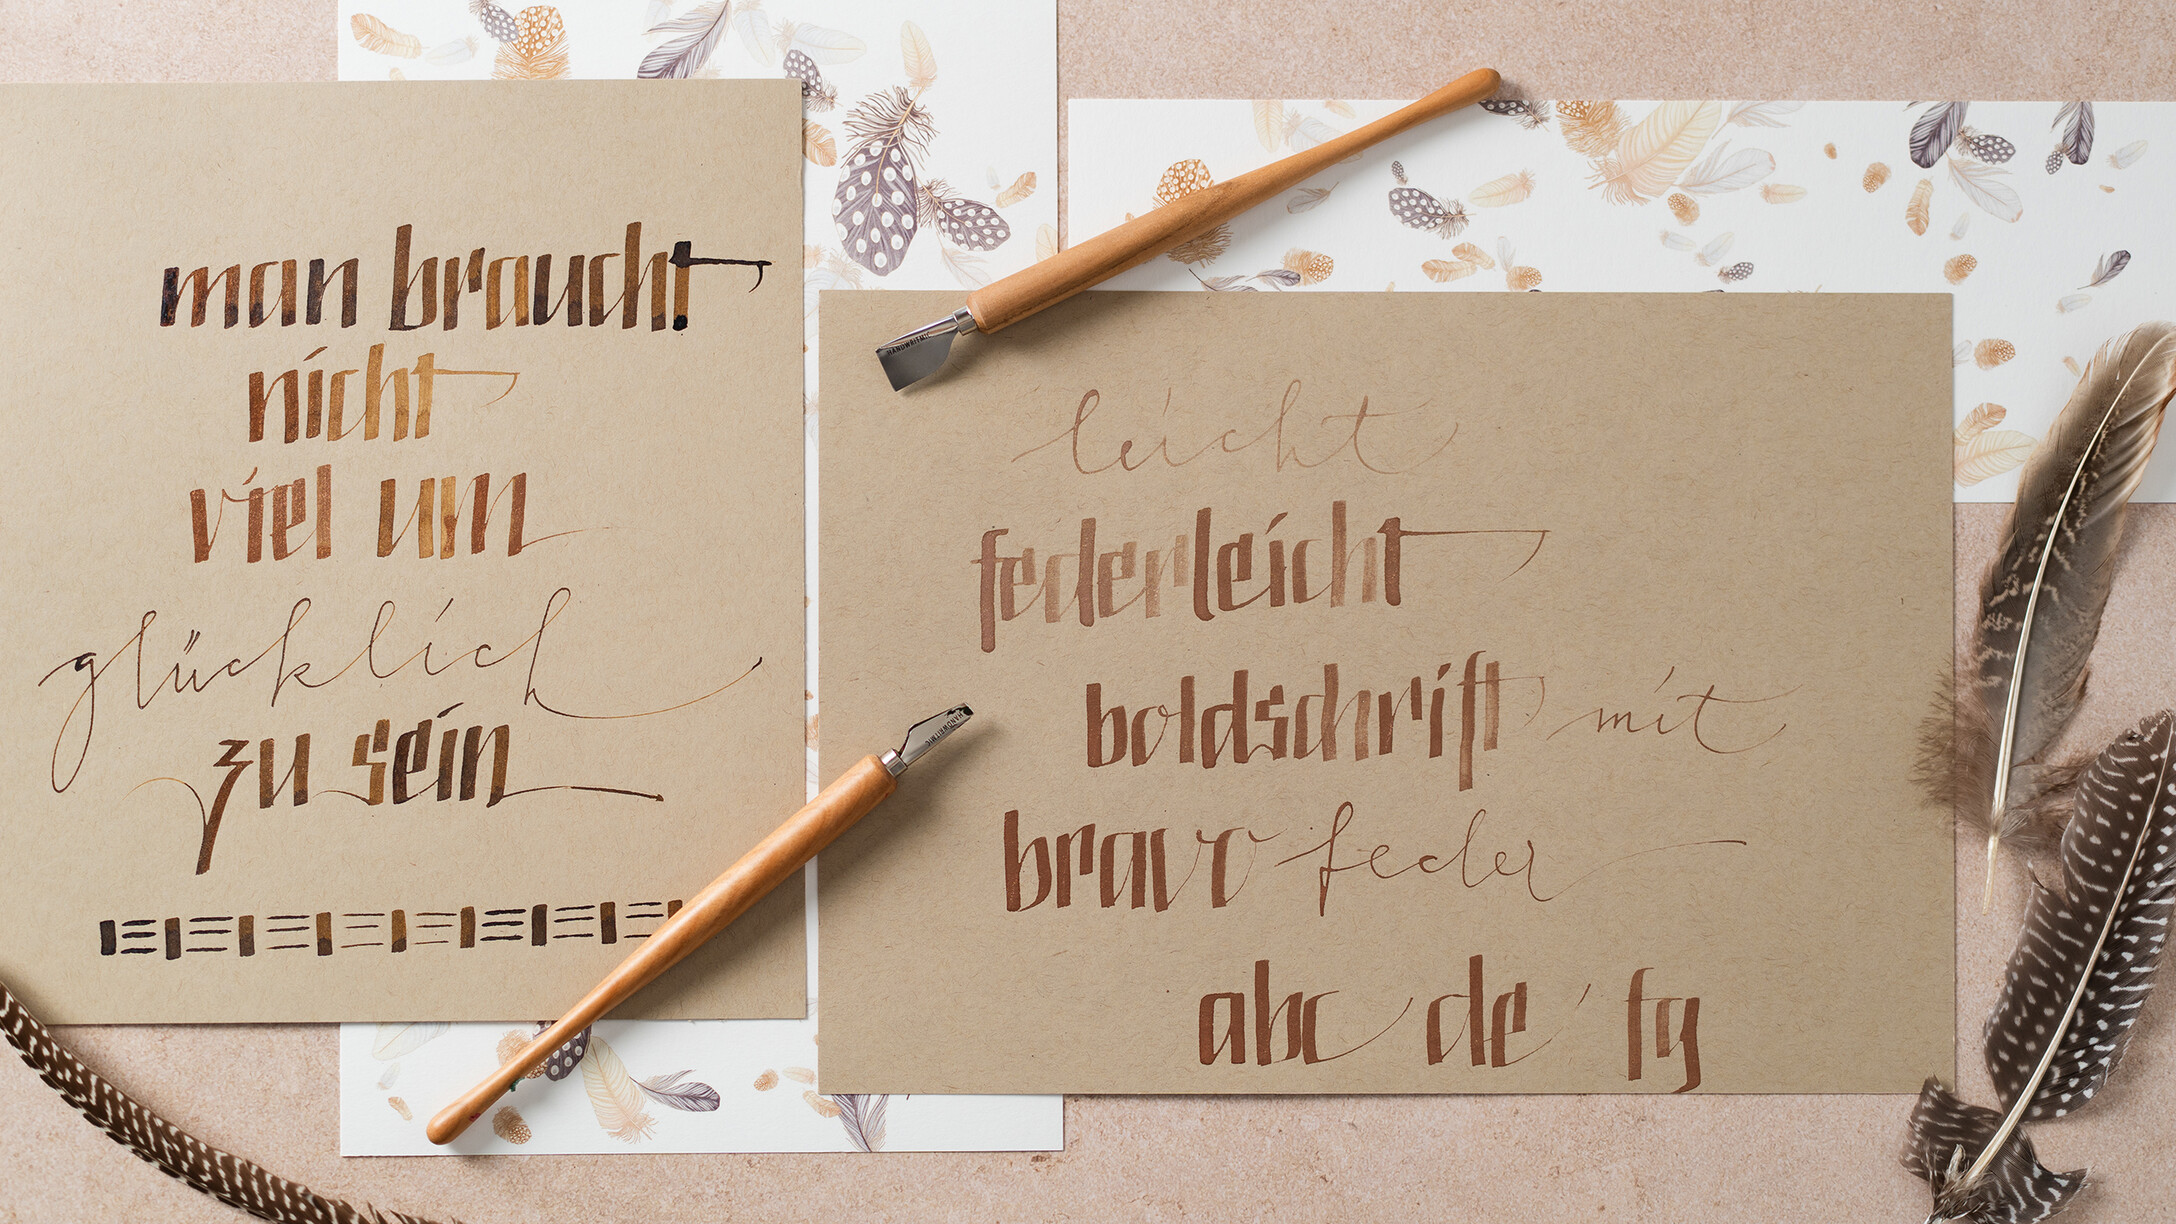 man braucht
nicht
viel um
glücklich
zu sein
HANDWRITMIC
leicht
federleicht
boldschrift mit
bravo feder
abc de fg
HANDWRITMIC